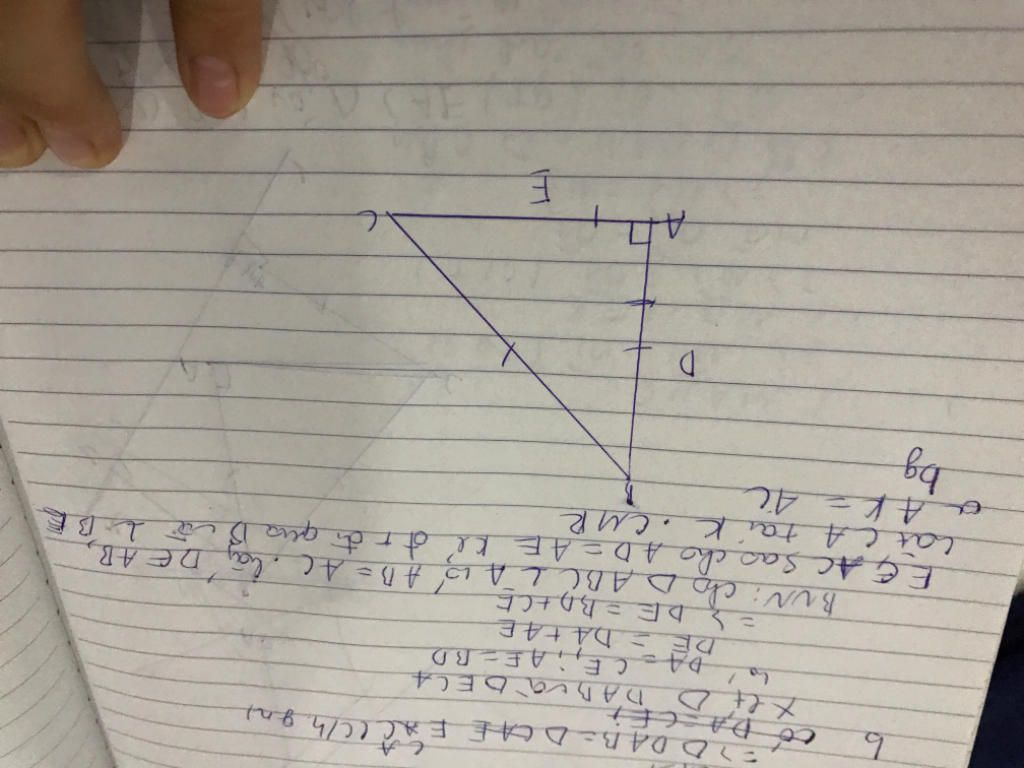 => Δ DAB = Δ CAE
b có DA = CE;
Xét Δ DAB và Δ ECA
có DA = CE; AE = BD
DE = DA + AE
=> DE = BD + CE
BVN: cho Δ ABC ⊥ A có AB = AC. lấy D ∈ AB,
E ∈ AC sao cho AD = AE kẻ đt đi qua D và ⊥ BE
cắt CA tại K. CMR
a AK = AC
bg
B
D
A
E
C